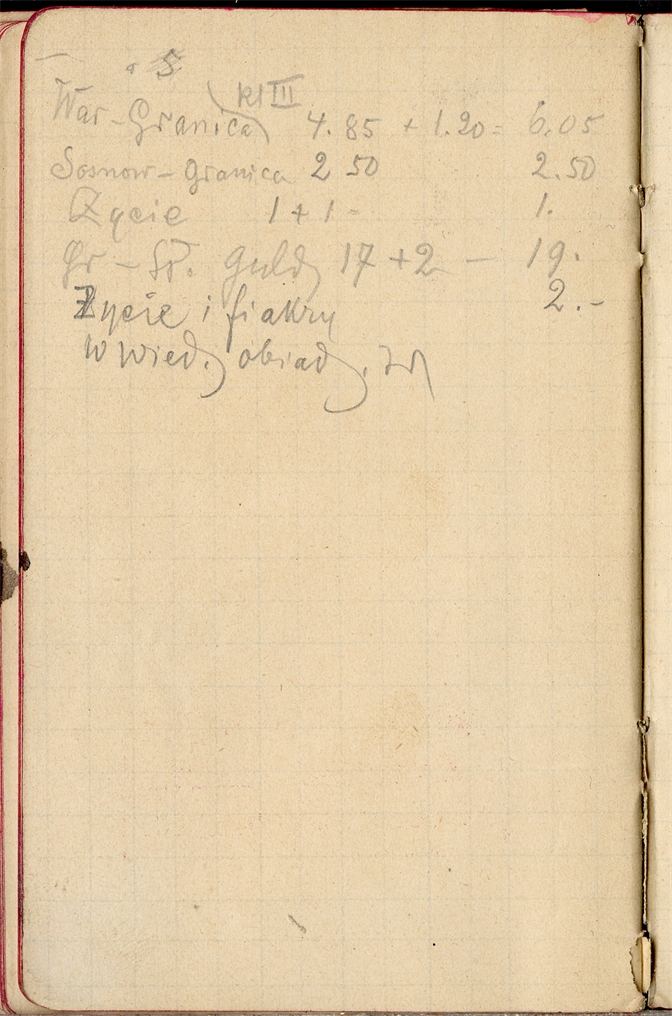 5
kl III
War-Granica 4.85 + 1.20 = 6.05
Sosnow-Granica 2 50 2.50
Życie 1 + 1 - 1.
Gr - Guld 17 + 2 — 19.
Życie i fiakry 2.-
w wied. obiad